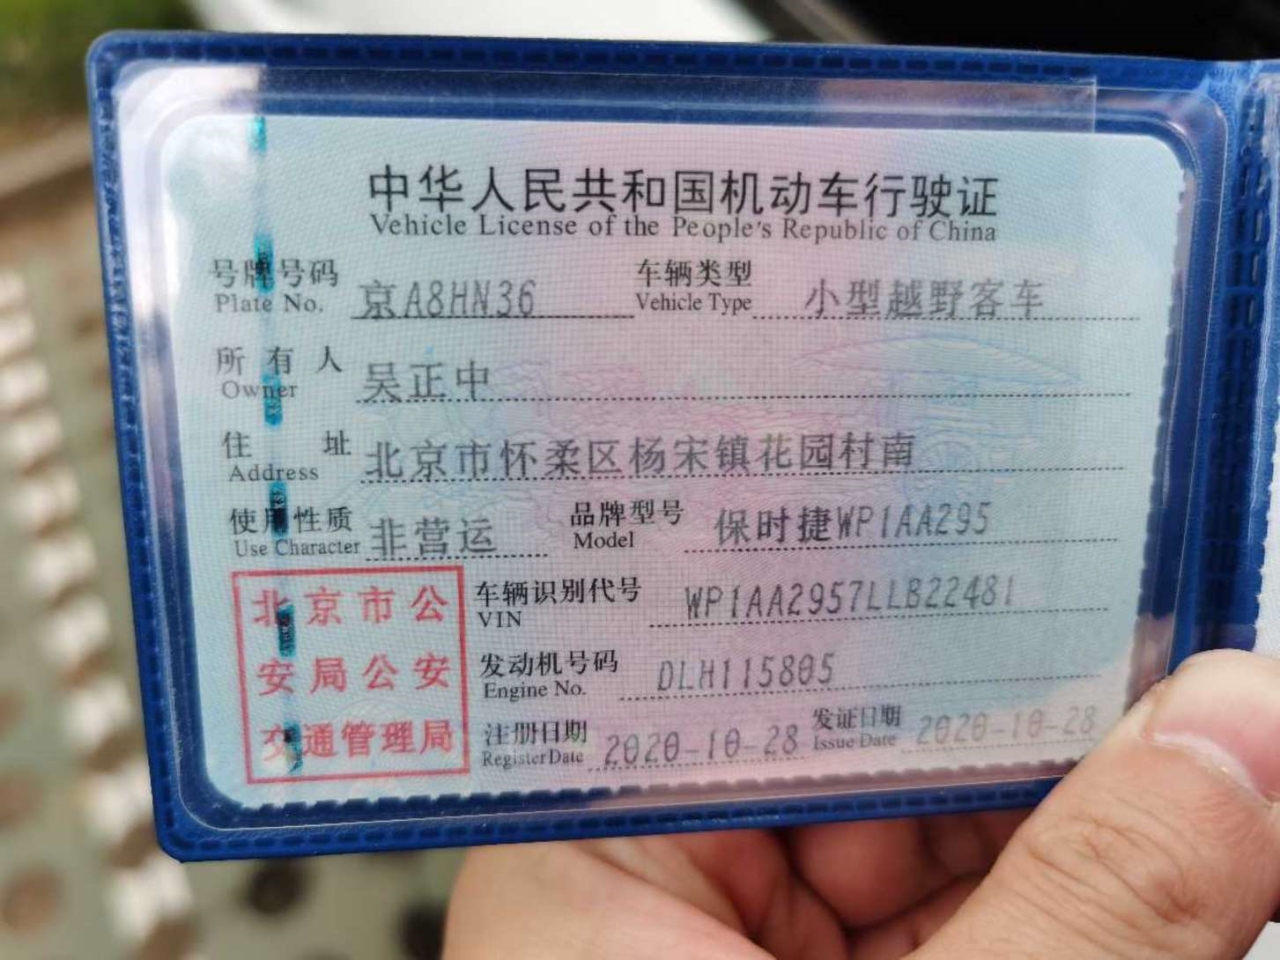 中华人民共和国机动车行驶证
Vehicle License of the People's Republic of China
号牌号码 京A8HN36 车辆类型 小型越野客车
Plate No. Vehicle Type
所有人 吴正中
Owner
住址 北京市怀柔区杨宋镇花园村南
Address
使用性质 非营运 品牌型号 保时捷WP1AA295
Use Character Model
北京市公
安局公安
交通管理局
车辆识别代号 WP1AA2957LLB22481
VIN
发动机号码 DLH115805
Engine No.
注册日期 2020-10-28 发证日期 2020-10-28
Register Date Issue Date